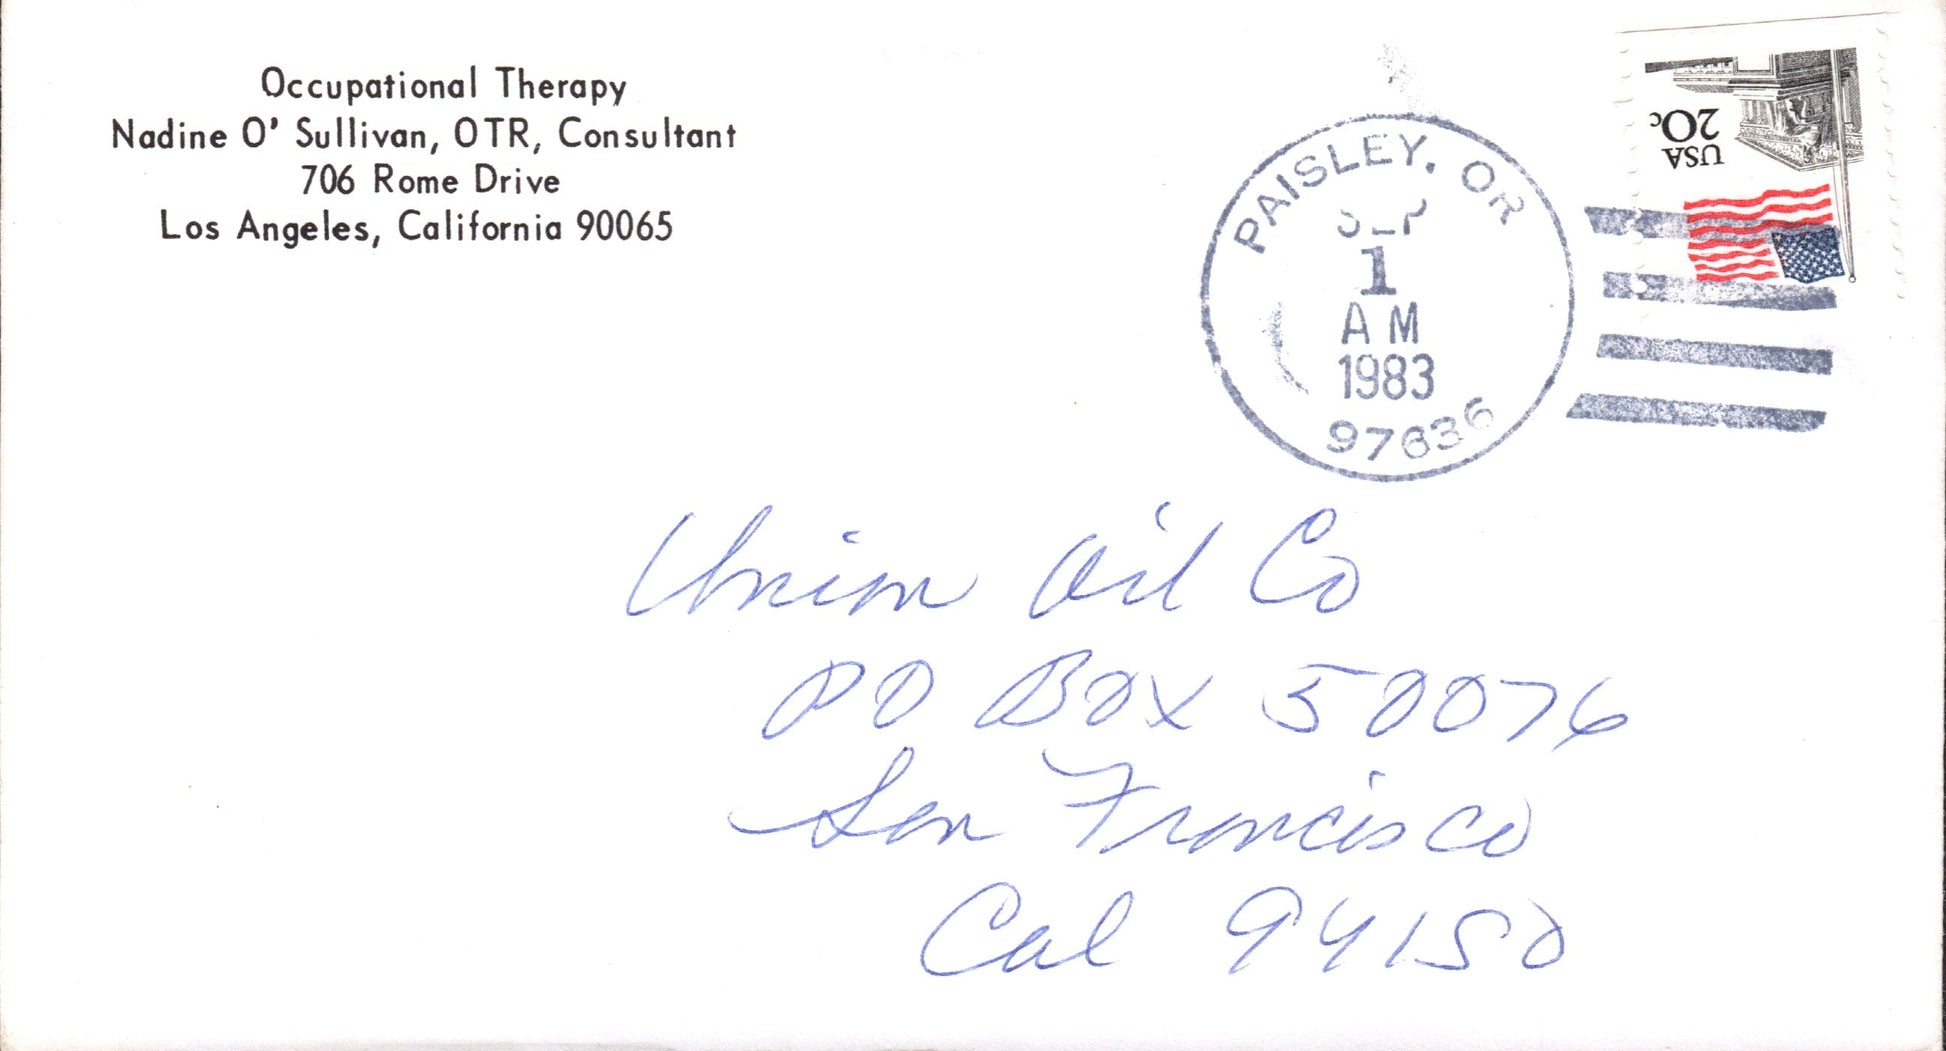 Occupational Therapy
Nadine O' Sullivan, OTR, Consultant
706 Rome Drive
Los Angeles, California 90065
PAISLEY, OR
SEP
1
AM
1983
97636
USA
20c
Union Oil Co
PO Box 50076
San Francisco
Cal 94150